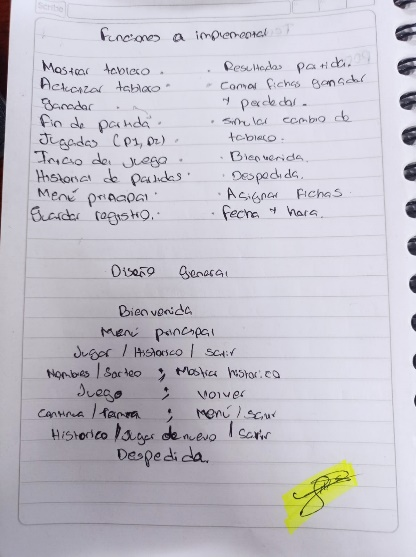 Funciones a implementar
Mostrar tablero.
Actualizar tablero.
Ganador.
Fin de partida.
Jugadas (P1, P2)
Inicio del Juego.
Historial de Partidas.
Menú principal.
Guardar registro.
· Resultados partida.
· Comer fichas ganador
y perdedor.
· simular cambio de
tablero.
· Bienvenida.
· Despedida.
· Asignar fichas.
· Fecha y hora.
Diseño General
Bienvenida
Menú principal
Jugar / Historico / salir
Nombres / Sorteo ; Mostrar historico
Juego ; Volver
Continua / ; Menú / salir
Historico / Jugar de nuevo / salir
Despedida.